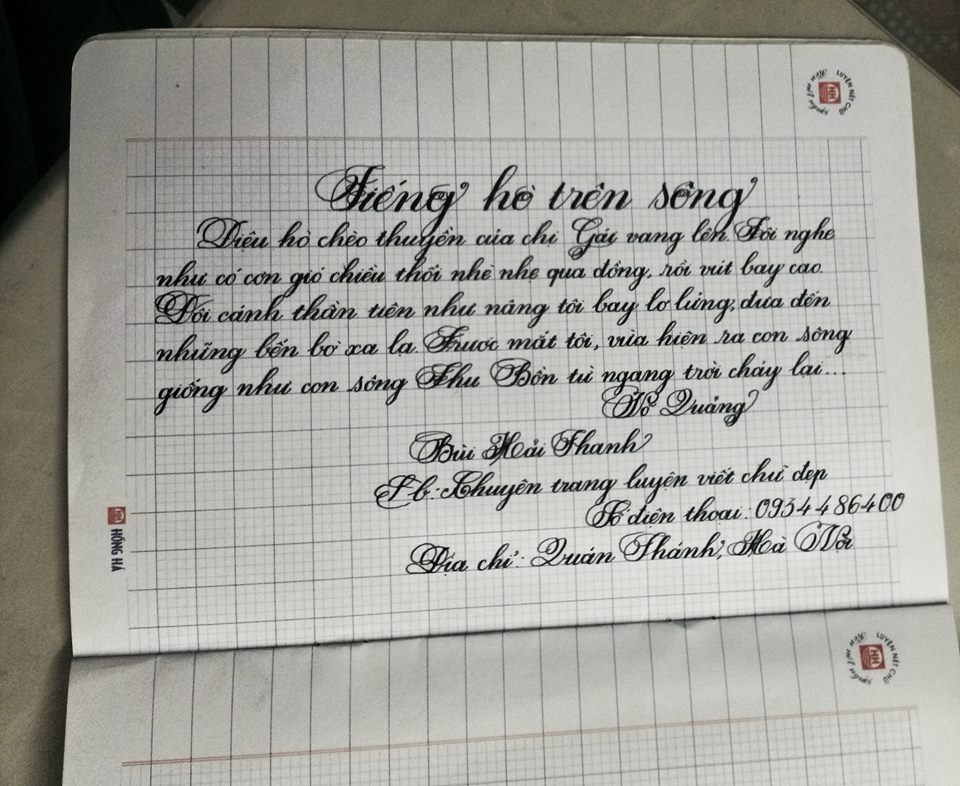 LUYỆN NÉT CHỮ
Rèn nết người
HH
Tiếng hò trên sông
Điệu hò chèo thuyền của chị Gái vang lên. Tôi nghe
như có cơn gió chiều thổi nhè nhẹ qua đồng, rồi vút bay cao.
Đôi cánh thần tiên như nâng tôi bay lơ lửng, đưa đến
những bến bờ xa lạ. Trước mắt tôi, vừa hiện ra con sông
giống như con sông Thu Bồn từ ngang trời chảy lại...
Võ Quảng
Bùi Hải Thanh
F-b: Chuyên trang luyện viết chữ đẹp
Số điện thoại: 0934486400
Địa chỉ: Quán Thánh, Hà Nội
HỒNG HÀ
LUYỆN NÉT CHỮ
Rèn nết người
HH